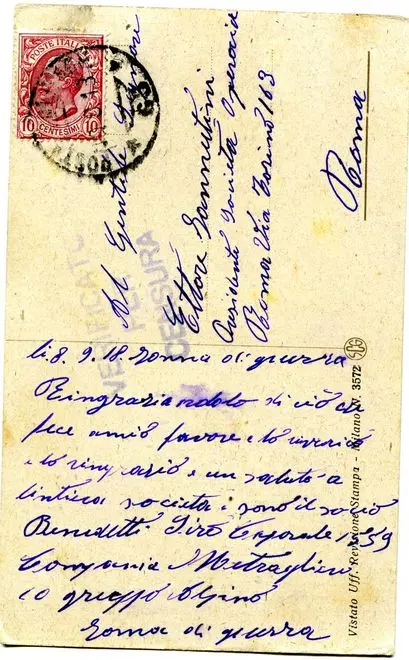 POSTE ITALIANE
10 CENTESIMI 10
POSTA
63
VERIFICATO
PER
CENSURA
Al Gentile Signori
Ettore Sannutini
Presidente Società Operaia
Roma Via Torino 163
Roma
li 8. 9. 18. Zonna di guerra
Ringraziandolo di ciò che
fece amio favore e lo
e lo ringrazio e un saluto a
lintiera società i sono il socio
Benedetti Siro Caporale 1559
Compania Metraglieri
10 gruppo Alpino
Zona di guerra
Vistato Uff. Revisione Stampa - Milano N. 3572